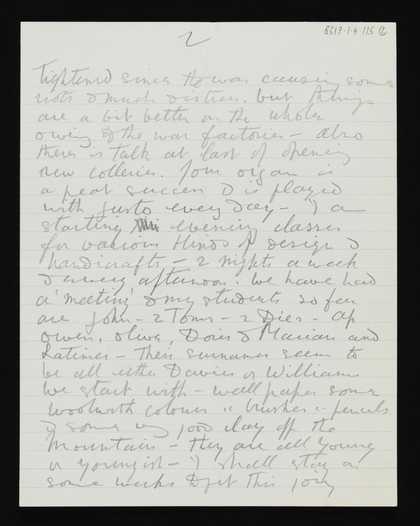 2
tightened since the war causing some
riots & much distress. but things
are a bit better on the whole
owing to the war factories - also
there is talk at last of opening
new collieries. Your organ is
a great success & is played
with gusto every day - I am
starting evening classes
for various kinds of design &
handicrafts - 2 nights a week
& every afternoon. We have had
a 'meeting' & my students so far
are John - 2 Toms - 2 Dies - ap
Owen, Olive, Doris & Marian and
Latimer - Their surnames seem to
be all either Davies or Williams
We start with - wall paper some
Woolworth colours & brushes & pencils
& some very good clay off the
Mountain - They are all young
or youngish - I shall stay on
some weeks to get this going